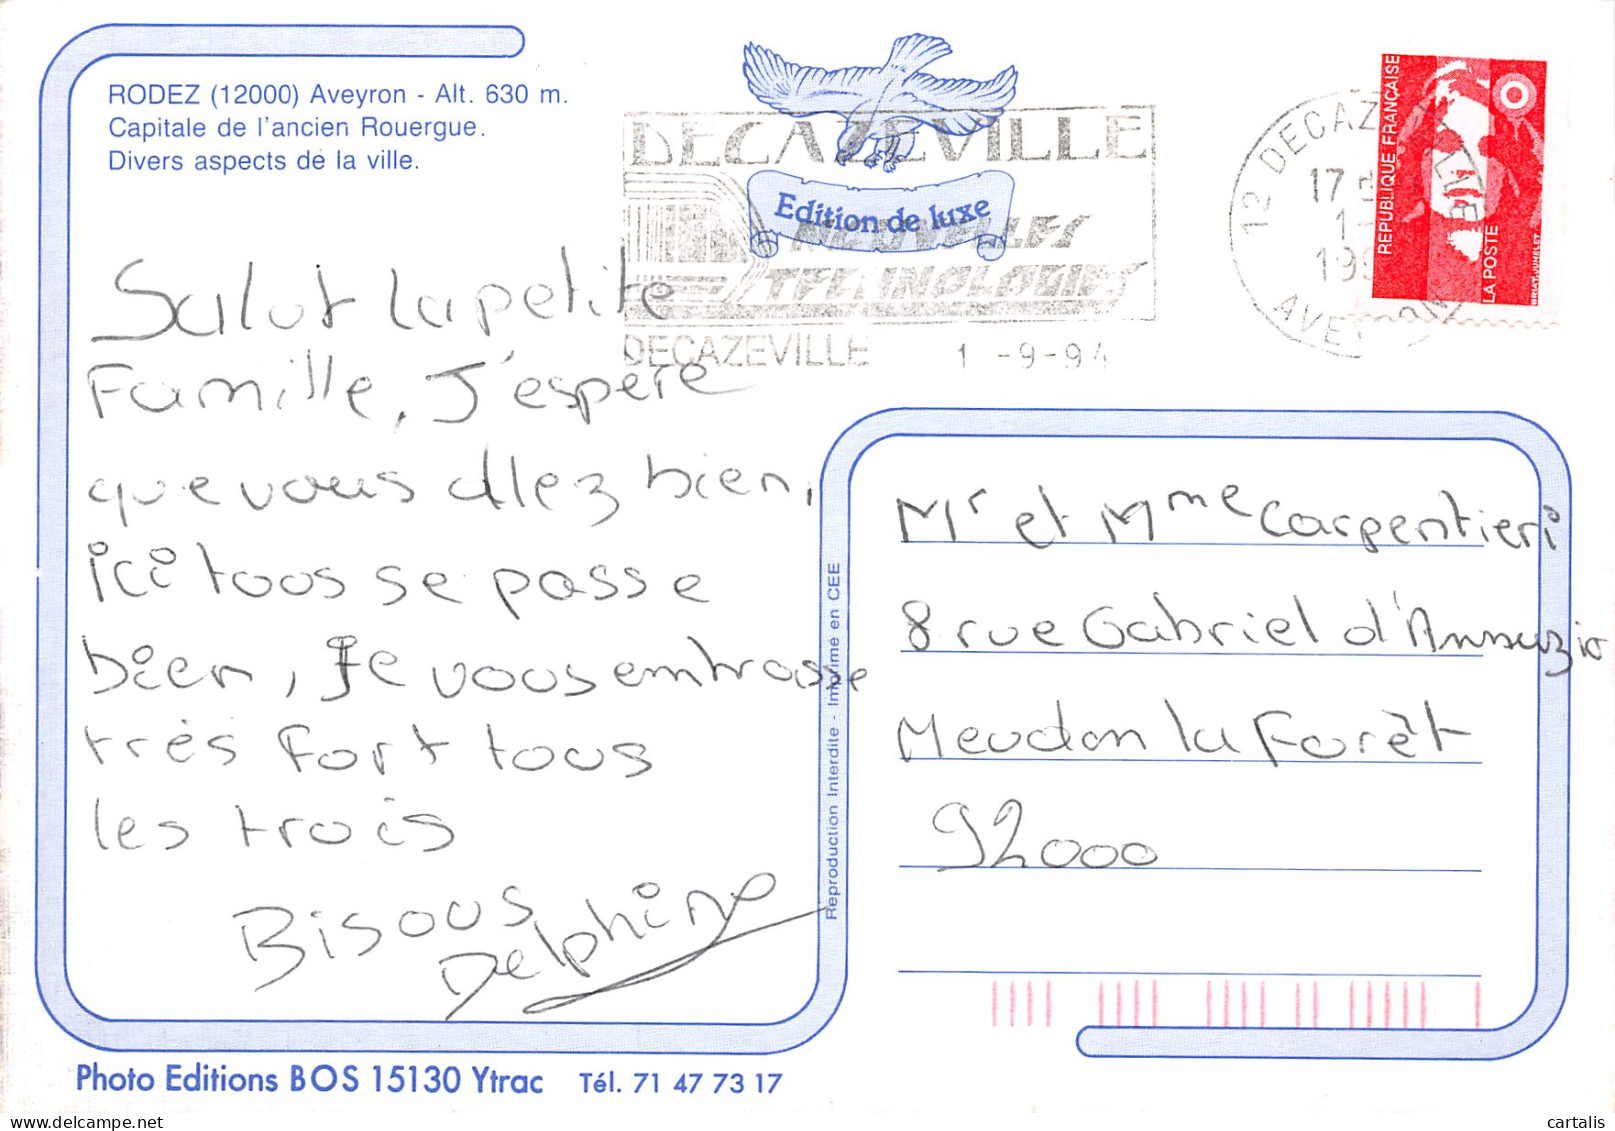 RODEZ (12000) Aveyron - Alt. 630 m.
Capitale de l'ancien Rouergue.
Divers aspects de la ville.
Edition de luxe
DECAZEVILLE
NOUVELLES
TECHNOLOGIES
DECAZEVILLE 1 -9-94
12 DECAZEVILLE
17 H
1-
199
AVEYRON
REPUBLIQUE FRANÇAISE
LA POSTE
BRIAT-JUMELET
Salut la petite
Famille, J'espère
que vous allez bien,
ici tous se passe
bien, Je vous embrasse
très fort tous
les trois
Bisous
Delphine
Reproduction Interdite - Imprimé en CEE
Mr et Mme Carpentieri
8 rue Gabriel d'Annuzio
Meudon la Forêt
92000
Photo Editions BOS 15130 Ytrac Tél. 71 47 73 17
cartalis